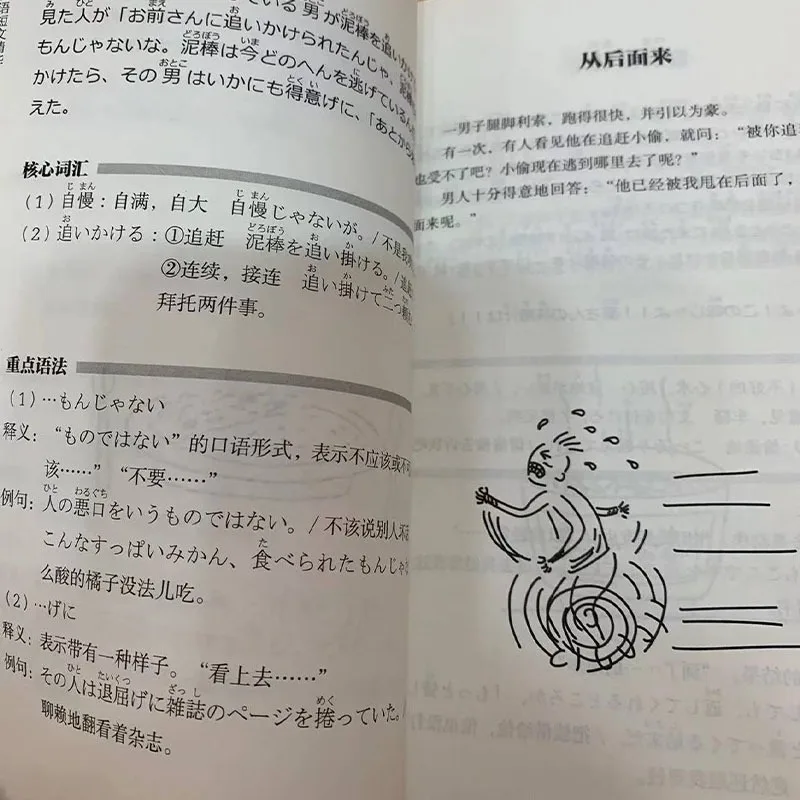 语短文精华
見た人が「お前さんに追いかけられたんじゃ、泥
もんじゃないな。泥棒は今どのへんを逃げているん
かけたら、その男はいかにも得意げに、「あとから
えた。
核心词汇
(1) 自慢：自满，自大 自慢じゃないが。/不是我
(2) 追いかける：①追赶 泥棒を追い掛ける。/追赶
②连续，接连 追い掛けて二つ頼
拜托两件事。
重点语法
(1) …もんじゃない
释义：“ものではない”的口语形式，表示不应该或不可
该……” “不要……”
例句：人の悪口をいうものではない。/不该说别人坏
こんなすっぱいみかん、食べられたもんじゃ
么酸的橘子没法儿吃。
(2) …げに
释义：表示带有一种样子。“看上去……”
例句：その人は退屈げに雑誌のページを捲っていた。/
聊赖地翻看着杂志。
从后面来
一男子腿脚利索，跑得很快，并引以为豪。
有一次，有人看见他在追赶小偷，就问：“被你追
也受不了吧？小偷现在逃到哪里去了呢？”
男人十分得意地回答：“他已经被我甩在后面了，
面来呢。”